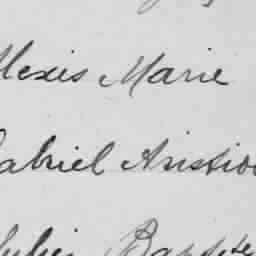 lexis Marie
abriel Aristid
Julien Baptiste